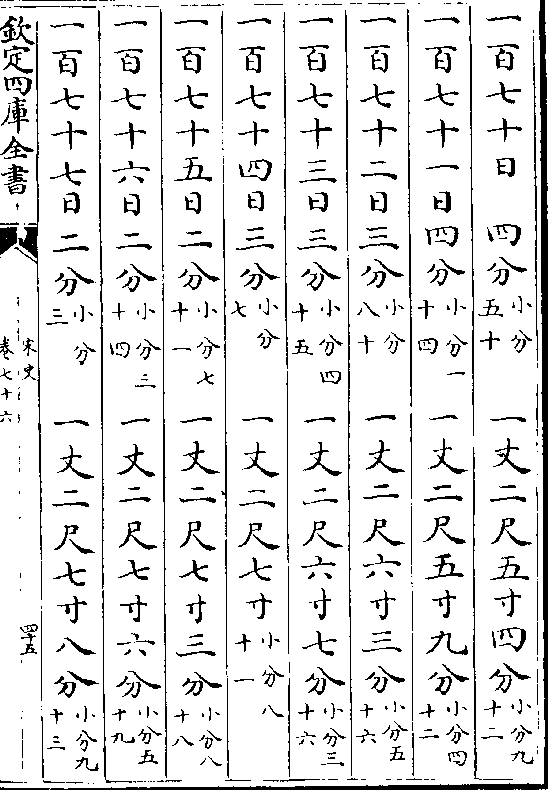 一百七十日　四分小分五十　一丈二尺五寸四分小分九十二
一百七十一日四分小分一十四　一丈二尺五寸九分小分四十二
一百七十二日三分小分八十　一丈二尺六寸三分小分五十六
一百七十三日三分小分四十五　一丈二尺六寸七分小分三十六
一百七十四日三分小分七　一丈二尺七寸小分八十一
一百七十五日二分小分七十一　一丈二尺七寸三分小分八十八
一百七十六日二分小分三十四　一丈二尺七寸六分小分五十九
一百七十七日二分小分三　一丈二尺七寸八分小分九十三
欽定四庫全書
宋史
卷七十六
四十五